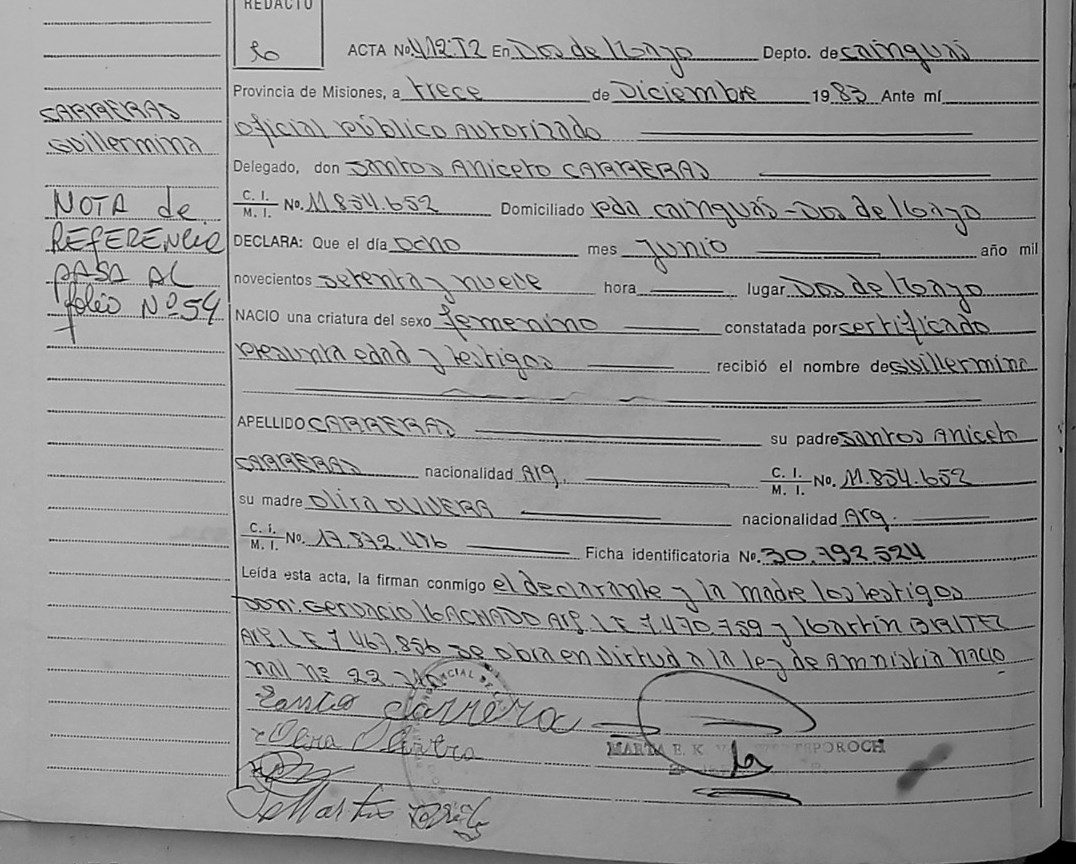 REDACTO
ACTA No. 412.T2 En Dos de Mayo Depto. de cainguás
Provincia de Misiones, a trece de Diciembre 1983 Ante mí
CARRERAS
oficial público Autorizado
Guillermina
Delegado, don Santos Aniceto CARRERAS
NOTA de
C. I.
M. I. No. 11.854.652 Domiciliado pdn cainguás - Dos de Mayo
REFERENCIA
DECLARA: Que el día ocho mes Junio año mil
PASA AL
novecientos setenta y nueve hora lugar Dos de Mayo
folio Nº 54
NACIO una criatura del sexo femenino constatada por certificado
presunta edad y testigos recibió el nombre de Guillermina
APELLIDO CARRERAS su padre Santos Aniceto
CARRERAS nacionalidad Arg. C. I.
M. I. No. 11.854.652
su madre Olira OLIVERA nacionalidad Arg.
C. I.
M. I. No. 17.872.476 Ficha identificatoria No. 30.792.524
Leída esta acta, la firman conmigo el declarante y la madre los testigos
Don: Geruncio MACHADO Arg. L E 7.470.759 y Martín
Arg. L E 7.467.856 se obra en virtud a la ley de Amnistía nacio
nal nº 22
Santo Carrera
MARTA E. K.
Martin